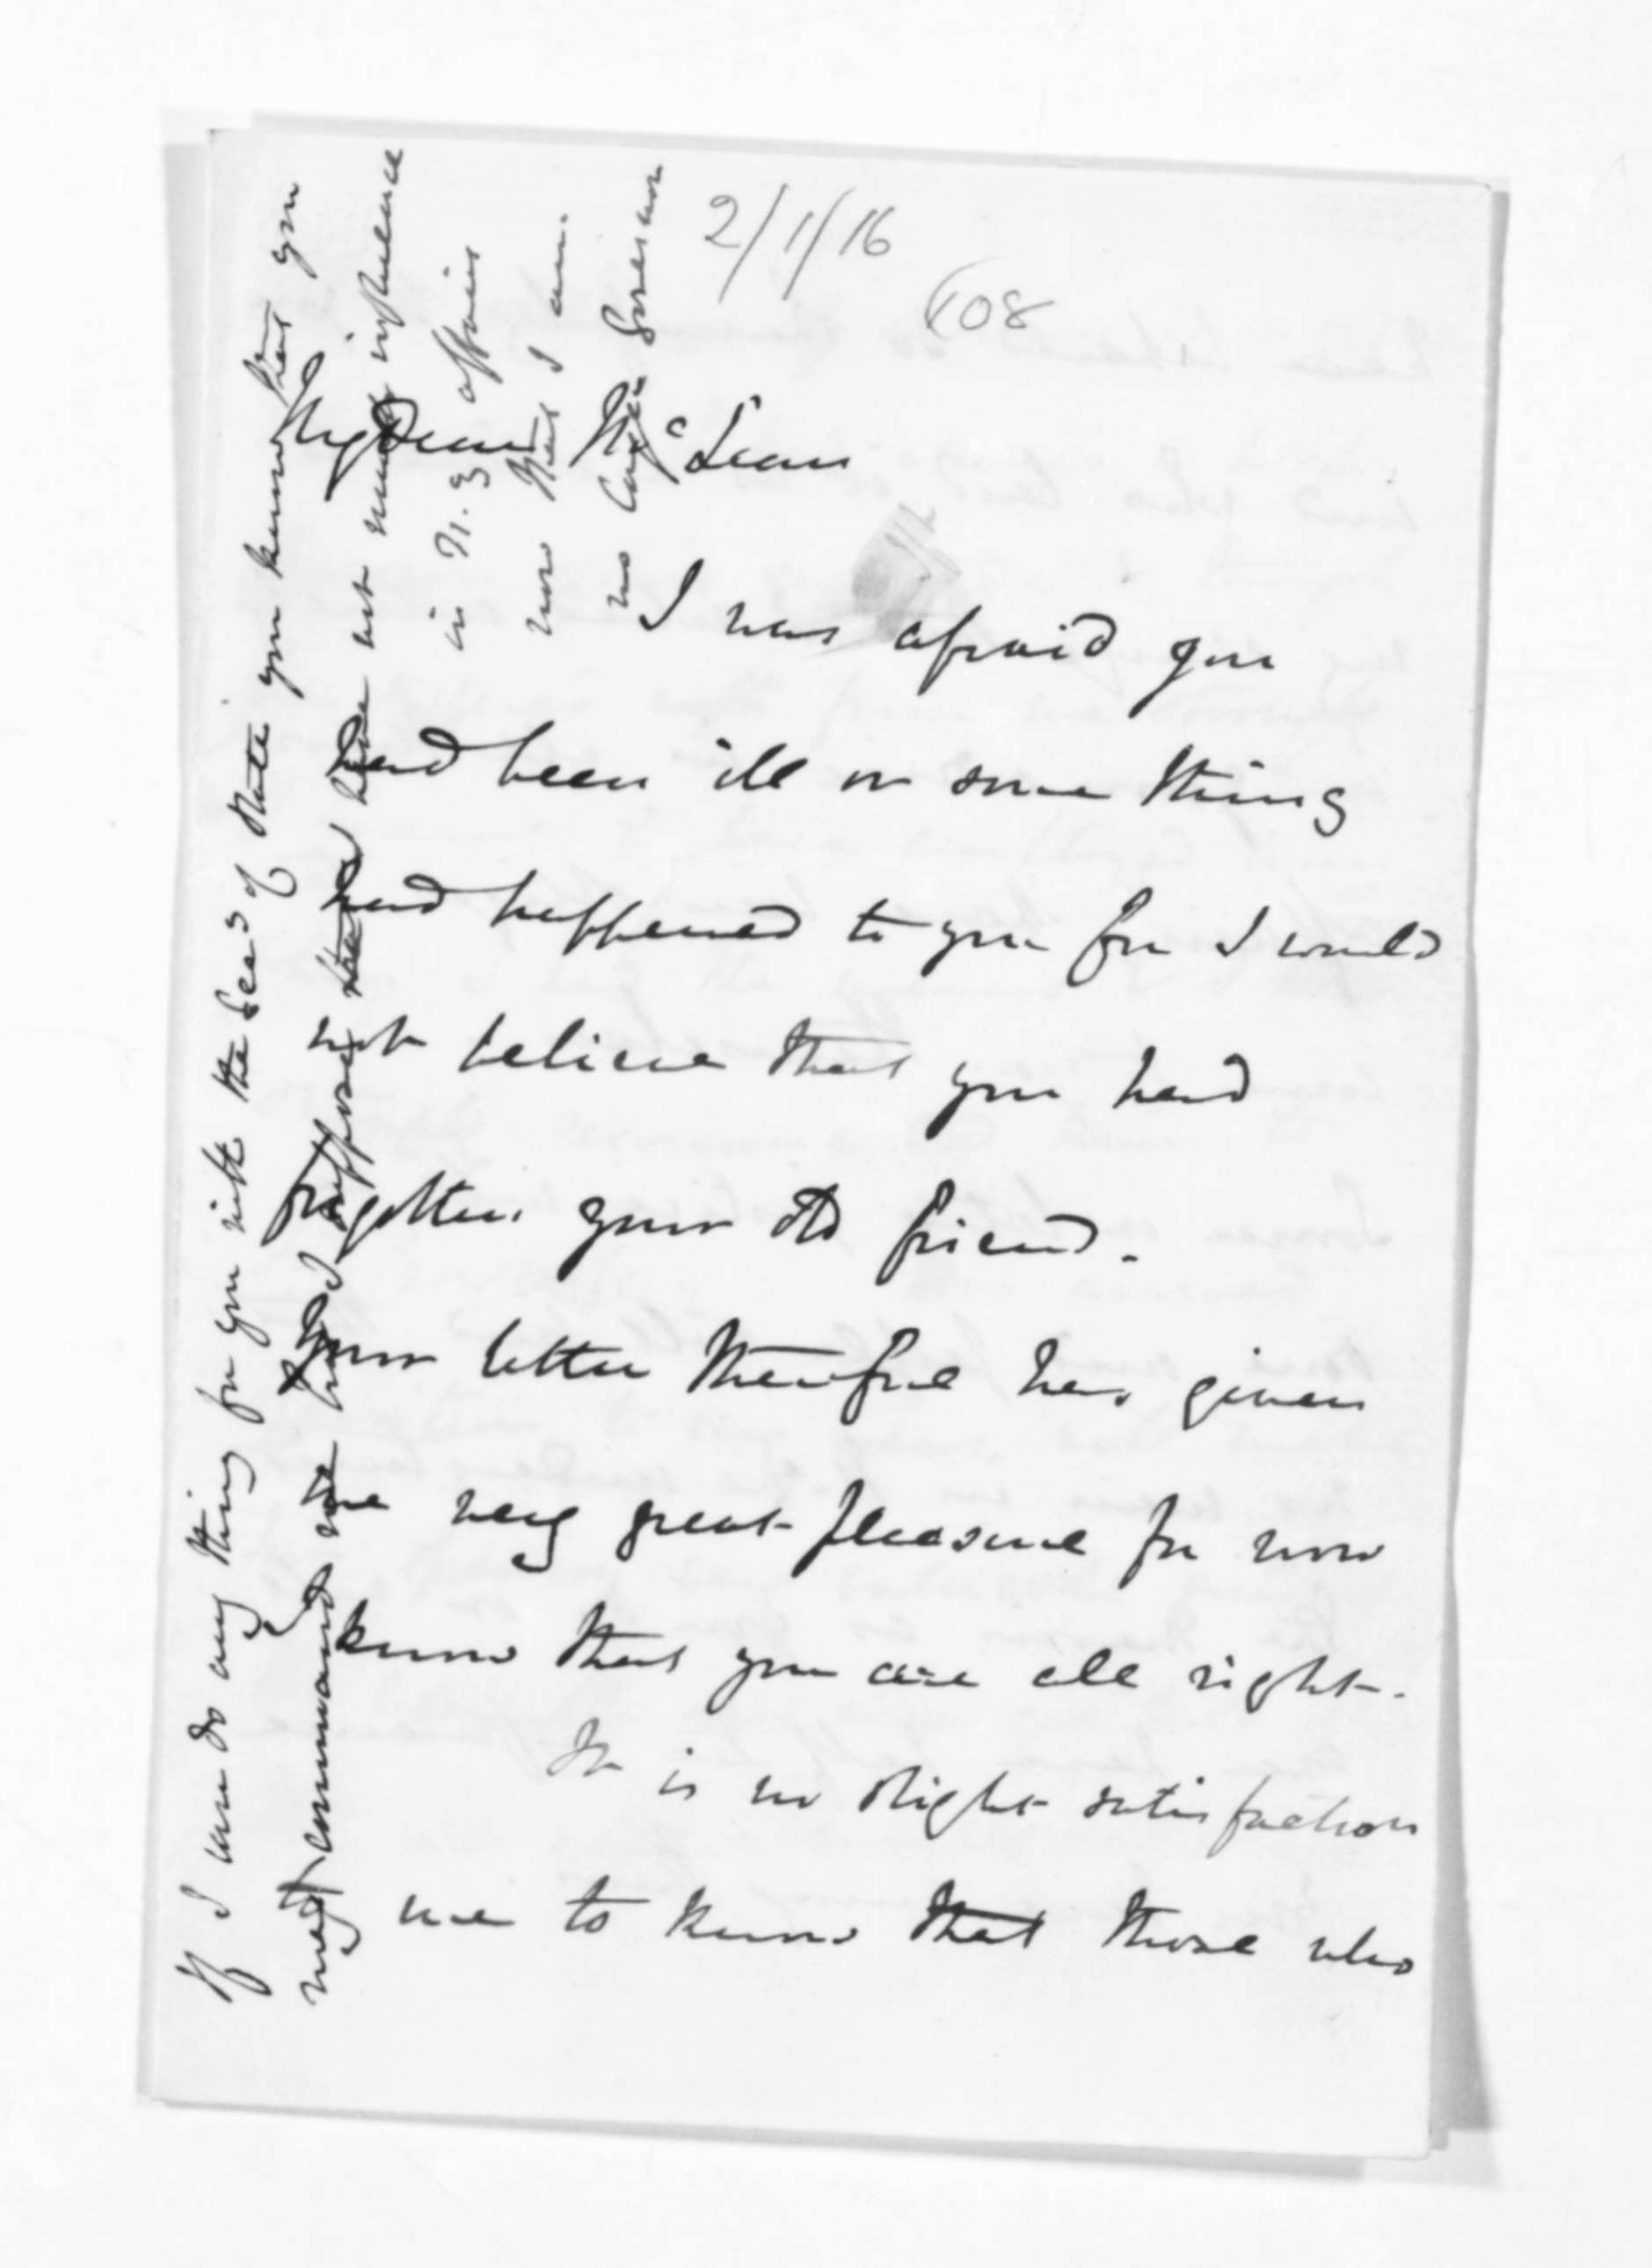 2/1/16
(108
My Dear McLean
I was afraid you
had been ill or some thing
had happened to you for I would
not believe that you had
forgotten your old friend.
Your letter therefore has given
me very great pleasure for now
know that you are all right.
It is no slight satisfaction
to me to know that those who
If I can do any thing for you with the Secy of State you know that you
may command me but I suppose have not much influence
in N.Z affairs
now that I am
no longer Governor